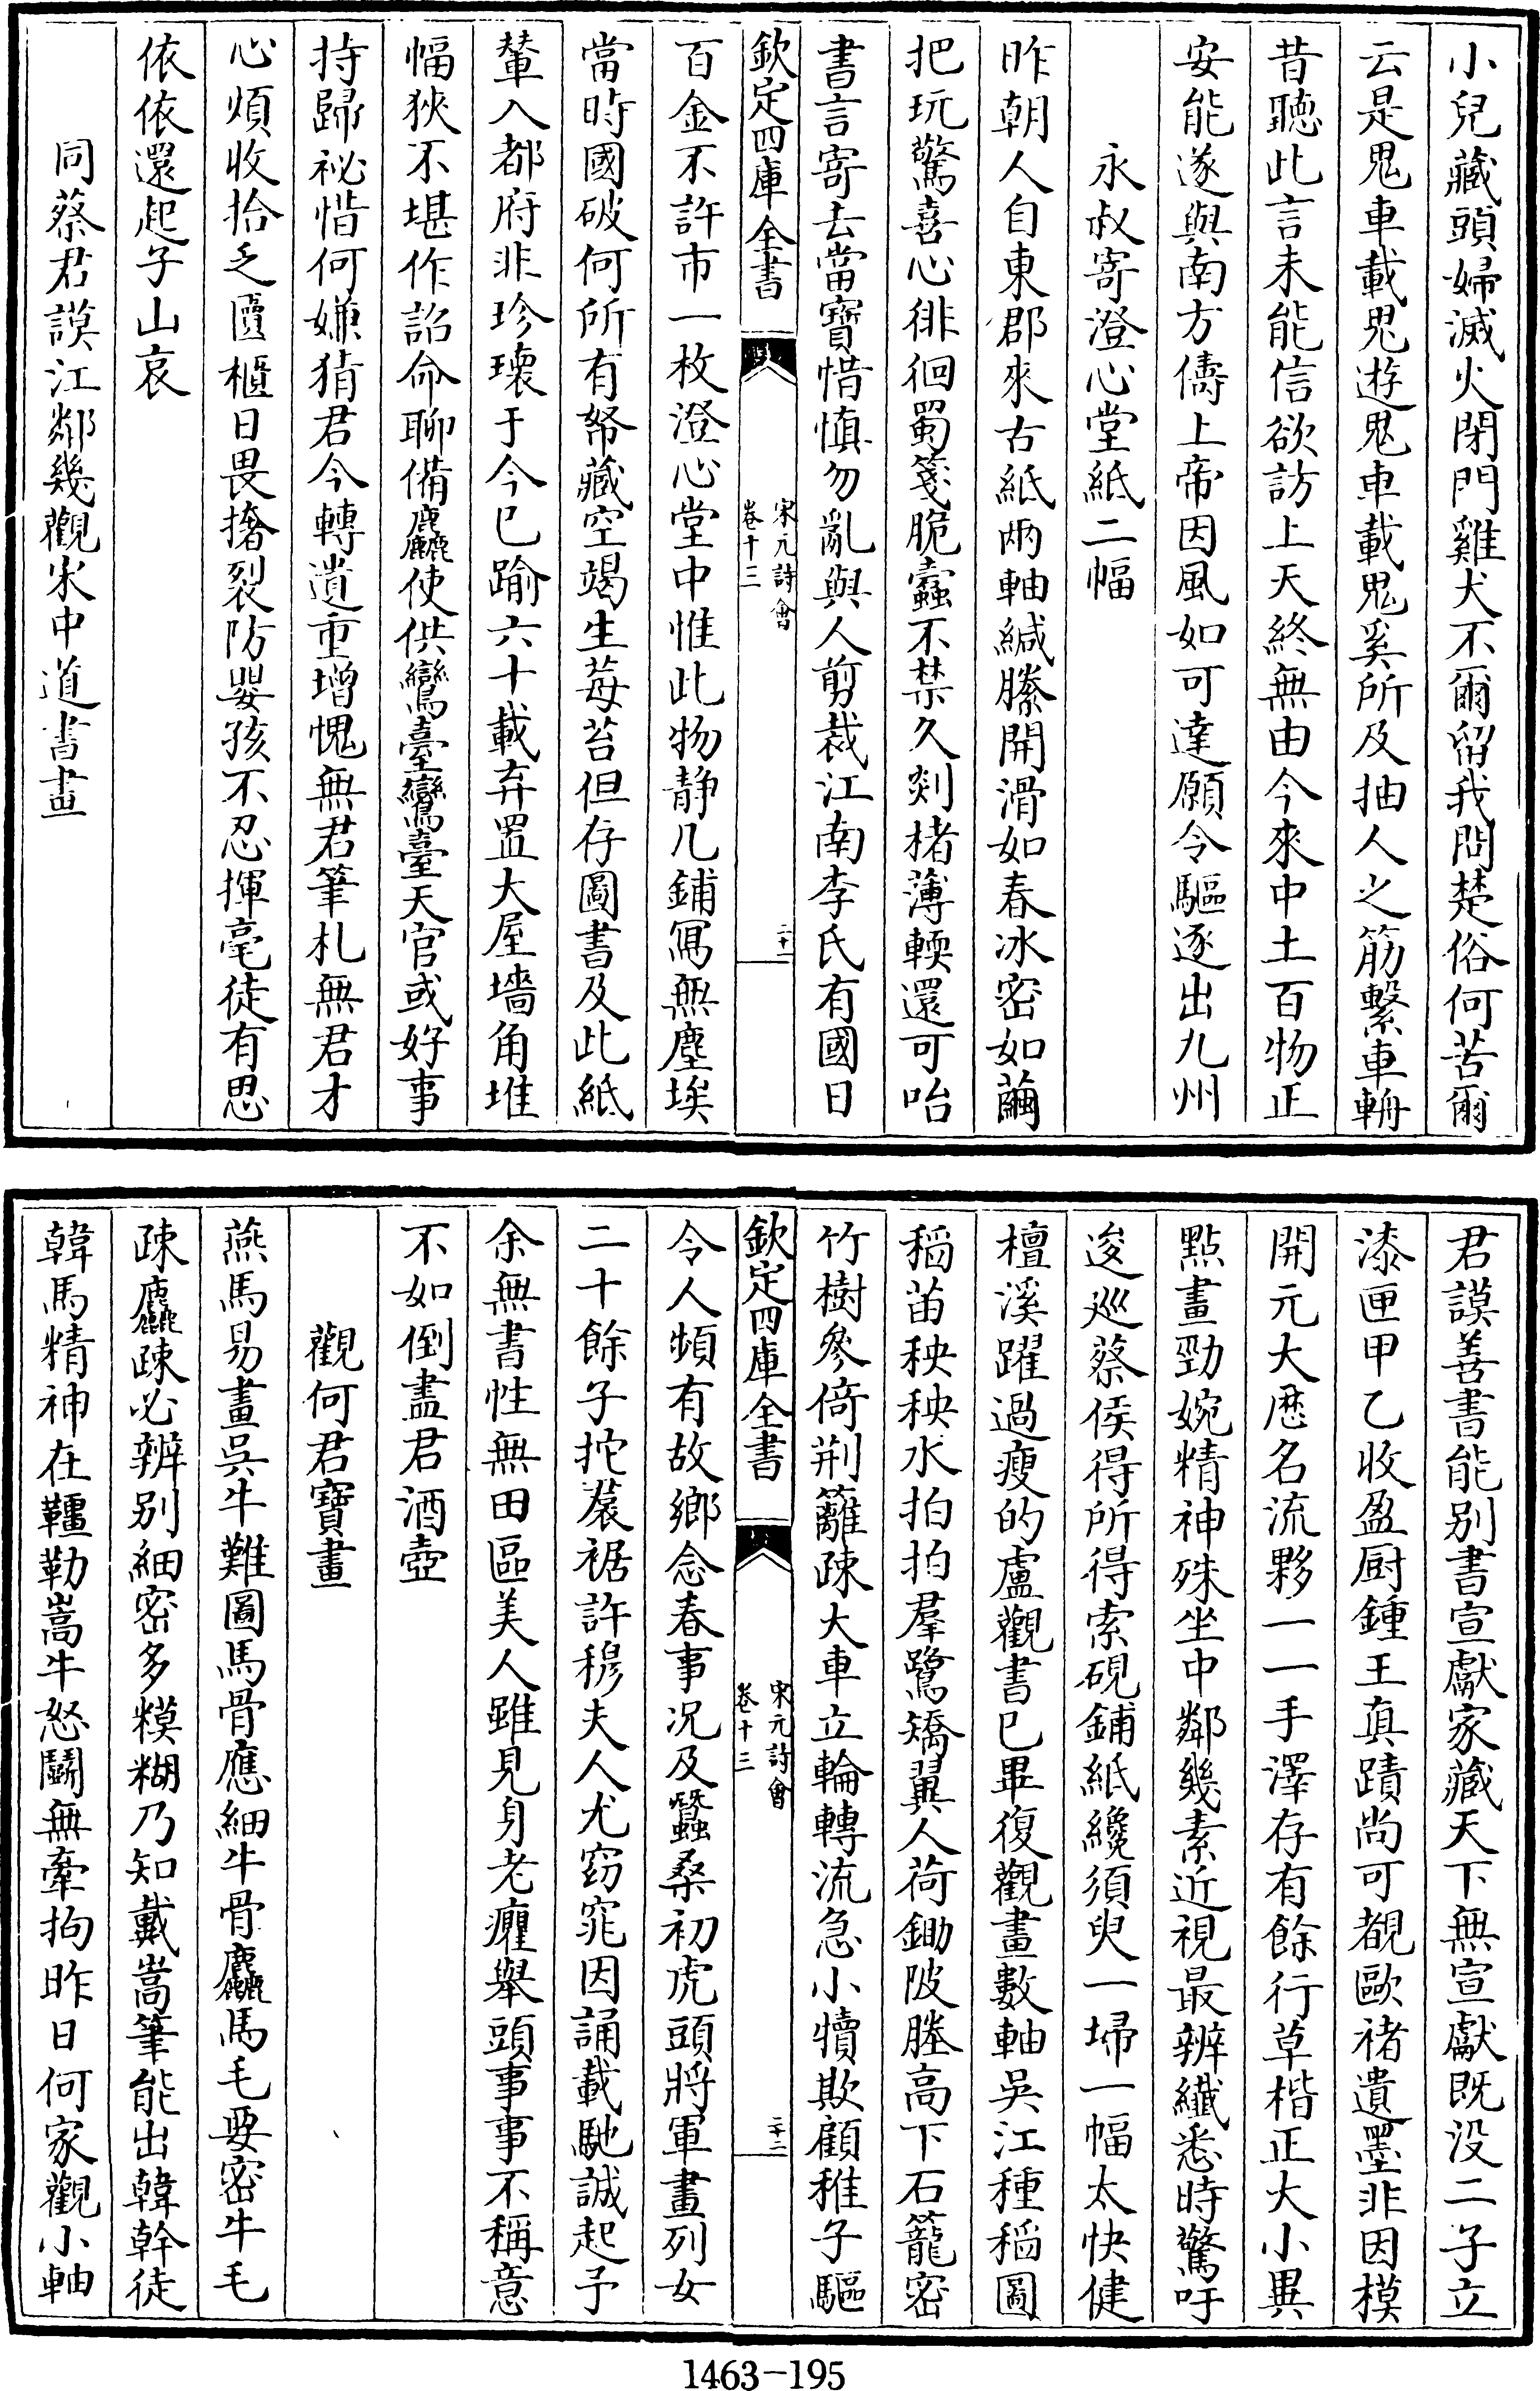 小兒藏頭婦滅火閉門雞犬不爾留我問楚俗何苦爾
云是鬼車載鬼遊鬼車載鬼奚所及抽人之筋繫車軵
昔聽此言未能信欲訪上天終無由今來中土百物正
安能遂與南方儔上帝因風如可達願令驅逐出九州
永叔寄澄心堂紙二幅
昨朝人自東郡來古紙兩軸緘縢開滑如春冰密如繭
把玩驚喜心徘徊蜀箋脆蠧不禁久剡楮薄輭還可咍
書言寄去當寶惜慎勿亂與人剪裁江南李氏有國日
欽定四庫全書
宋元詩會
卷十三
二十一
百金不許市一枚澄心堂中惟此物静几鋪寫無塵埃
當時國破何所有帑藏空竭生莓苔但存圖書及此紙
輦入都府非珍瓌于今已踰六十載弃置大屋墻角堆
幅狹不堪作詔命聊備麤使供鸞臺鸞臺天官或好事
持歸祕惜何嫌猜君今轉遺重增愧無君筆札無君才
心煩收拾乏匱櫃日畏撦裂防嬰孩不忍揮毫徒有思
依依還起子山哀
同蔡君謨江鄰幾觀宋中道書畫
君謨善書能别書宣獻家藏天下無宣獻既没二子立
漆匣甲乙收盈厨鍾王真蹟尚可覩歐禇遺墨非因模
開元大厯名流夥一一手澤存有餘行草楷正大小異
點畫勁婉精神殊坐中鄰幾素近視最辨纖悉時驚吁
逡巡蔡侯得所得索硯鋪紙纔須臾一埽一幅太快健
檀溪躍過瘦的盧觀書已畢復觀畫數軸吳江種稻圖
稻苗秧秧水拍拍羣鷺矯翼人荷鋤陂塍高下石籠密
竹樹參倚荆籬疎大車立輪轉流急小犢欺顧稚子驅
欽定四庫全書
宋元詩會
卷十三
二十二
令人頻有故鄉念春事況及蠶桑初虎頭將軍畫列女
二十餘子拕裠裾許穆夫人尤窈窕因誦載馳誠起予
余無書性無田區美人雖見身老癯舉頭事事不稱意
不如倒盡君酒壺
觀何君寶畫
燕馬易畫吳牛難圖馬骨應細牛骨麤馬毛要密牛毛
疎麤疎必辨别細密多糢糊乃知戴嵩筆能出韓幹徒
韓馬精神在韁勒嵩牛怒鬭無牽拘昨日何家觀小軸
1463-195